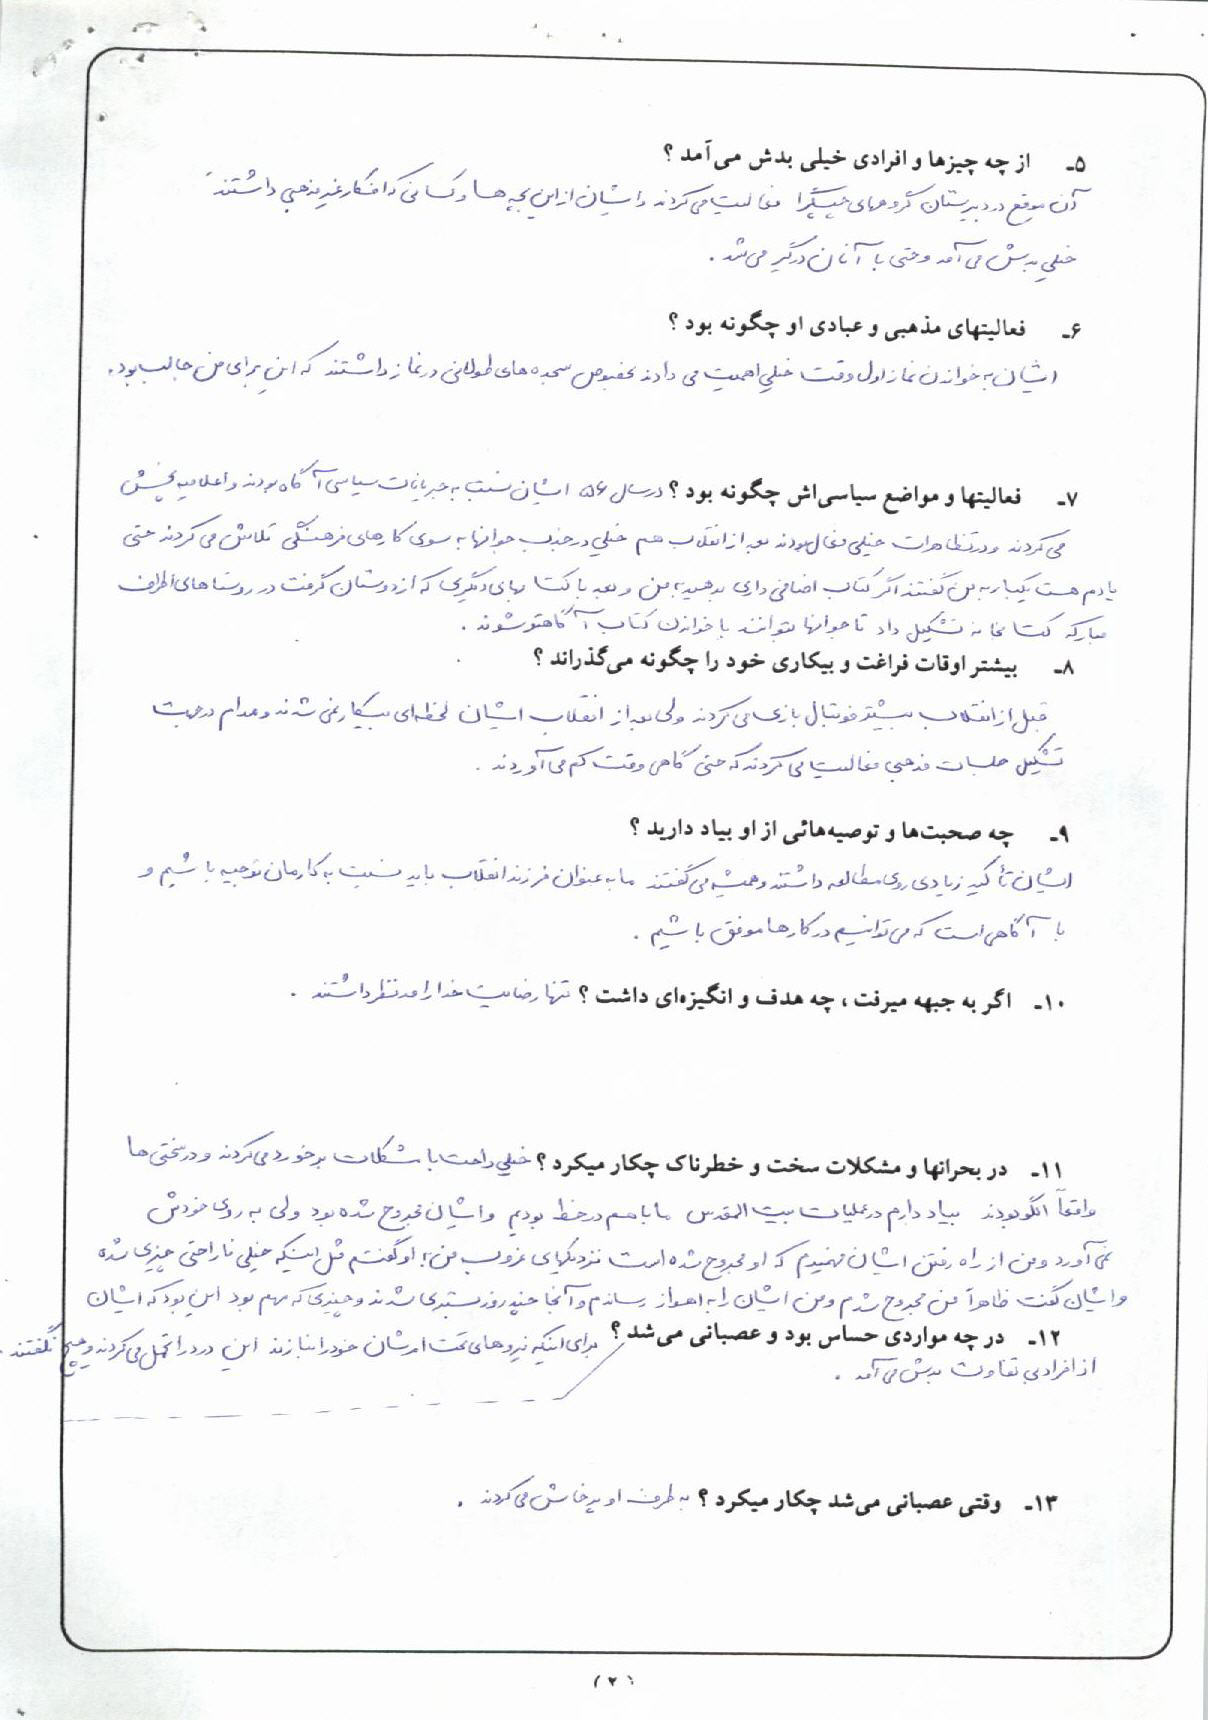 ۵ـ از چه چیزها و افرادی خیلی بدش می‌آمد ؟
آن موقع در دبیرستان گروههای چپگرا فعالیت می‌کردند و ایشان از این بچه‌ها و کسانی که افکار غیر مذهبی داشتند
خیلی بدش می‌آمد و حتی با آنان درگیر می‌شد .
۶ـ فعالیتهای مذهبی و عبادی او چگونه بود ؟
ایشان به خواندن نماز اول وقت خیلی اهمیت می دادند بخصوص سجده های طولانی در نماز داشتند که این برای من جالب بود.
۷ـ فعالیتها و مواضع سیاسی‌اش چگونه بود ؟ در سال ۵۶ ایشان نسبت به جریانات سیاسی آگاه بودند و اعلامیه پخش
می کردند و در تظاهرات خیلی فعال بودند بعد از انقلاب هم خیلی در جذب جوانها به سوی کارهای فرهنگی تلاش می کردند حتی
یادم هست یکبار به من گفتند اگر کتاب اضافی داری بدهید به من و بعد با کتابهای دیگری که از دوستان گرفت در روستاهای اطراف
مبارکه کتابخانه تشکیل داد تا جوانها بتوانند با خواندن کتاب آگاهتر شوند .
۸ـ بیشتر اوقات فراغت و بیکاری خود را چگونه می‌گذراند ؟
قبل از انقلاب بیشتر فوتبال بازی می کردند ولی بعد از انقلاب ایشان لحظه‌ای بیکار نمی شدند و مدام در جهت
تشکیل جلسات مذهبی فعالیت می کردند که حتی گاهی وقت کم می آوردند .
۹ـ چه صحبت‌ها و توصیه‌هائی از او بیاد دارید ؟
ایشان تأکید زیادی روی مطالعه داشتند و همیشه می گفتند ما به عنوان فرزند انقلاب باید نسبت به کارمان توجیه باشیم و
با آگاهی است که می توانیم در کارها موفق باشیم .
۱۰ـ اگر به جبهه میرفت ، چه هدف و انگیزه‌ای داشت ؟ تنها رضایت خدا را مد نظر داشتند .
۱۱ـ در بحرانها و مشکلات سخت و خطرناک چکار میکرد ؟ خیلی راحت با مشکلات برخورد می کردند و در سختی ها
واقعاً الگو بودند بیاد دارم در عملیات بیت المقدس ما با هم در خط بودیم و ایشان مجروح شده بود ولی به روی خودش
نمی آورد و من از راه رفتن ایشان فهمیدم که او مجروح شده است نزدیکهای غروب من به او گفتم مثل اینکه خیلی ناراحتی چیزی شده
و ایشان گفت ظاهراً من مجروح شدم و من ایشان را به اهواز رساندم و آنجا چند روز بستری شدند و چیزی که مهم بود این بود که ایشان
برای اینکه نیروهای تحت امرشان خود را نبازند این درد را تحمل می کردند و هیچ نگفتند .
۱۲ـ در چه مواردی حساس بود و عصبانی می‌شد ؟
از افراد بی تفاوت بدش می آمد .
۱۳ـ وقتی عصبانی می‌شد چکار میکرد ؟ به طرف او پرخاش می کردند .
(۲)